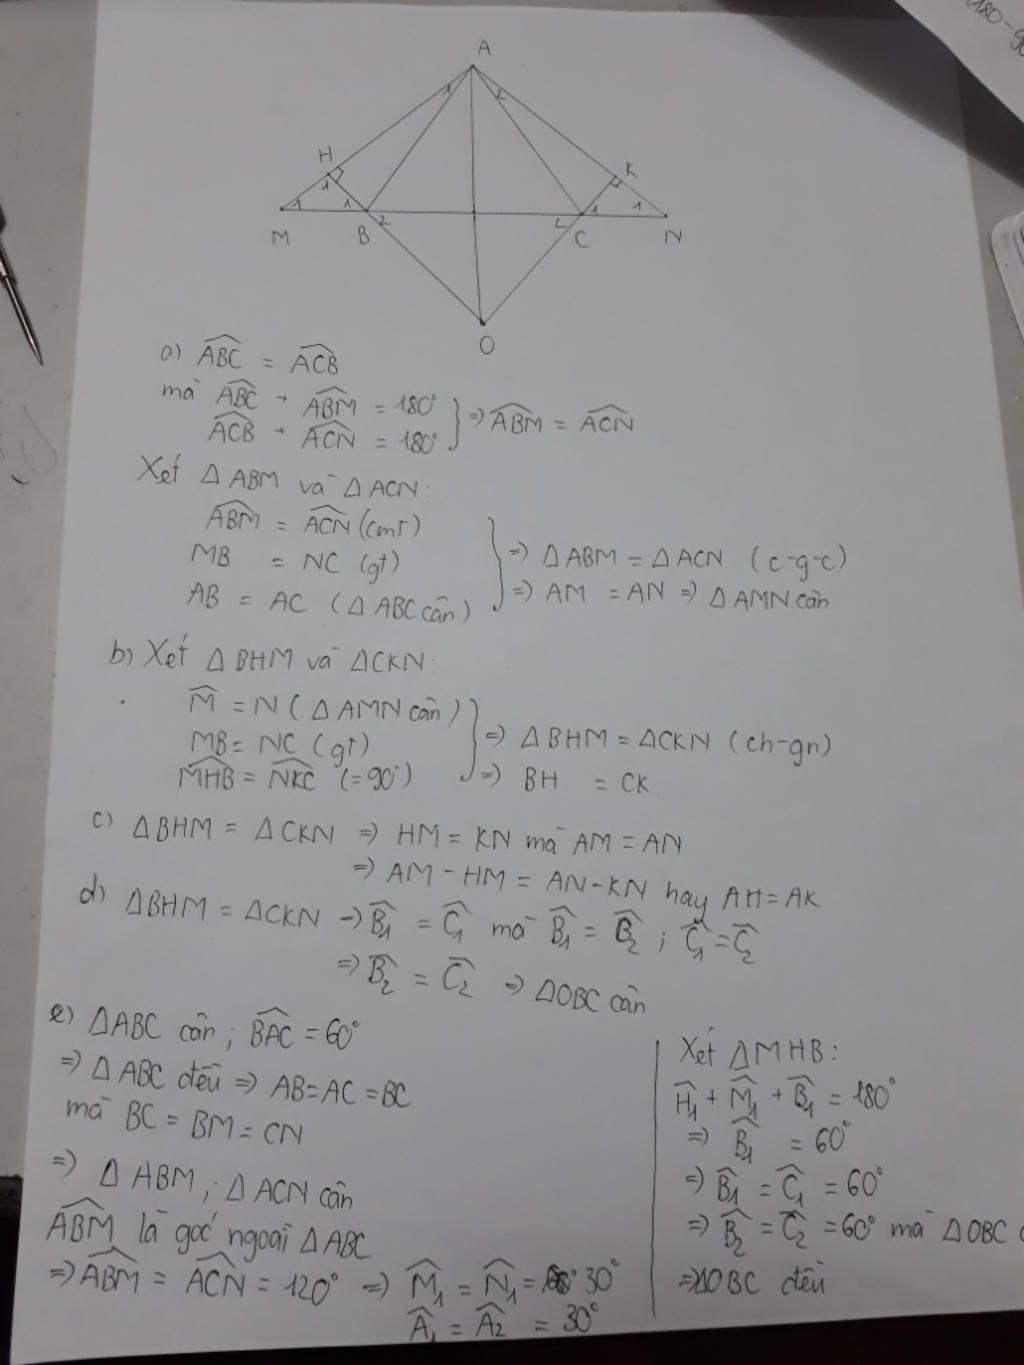 (180-90
A
1
2
H
K
1
1
1
1
1
M
B
2
2
C
N
O
a) ABC = ACB
mà ABC + ABM = 180°
ACB + ACN = 180°
=> ABM = ACN
Xét Δ ABM và Δ ACN:
ABM = ACN (cmt)
MB = NC (gt)
AB = AC (Δ ABC cân)
=> Δ ABM = Δ ACN (c-g-c)
=> AM = AN => Δ AMN cân
b) Xét Δ BHM và ΔCKN:
M = N (Δ AMN cân)
MB = NC (gt)
MHB = NKC (=90°)
=> Δ BHM = ΔCKN (ch-gn)
=> BH = CK
c) ΔBHM = ΔCKN => HM = KN mà AM = AN
=> AM - HM = AN - KN hay AH = AK
d) ΔBHM = ΔCKN -> B1 = C1 mà B1 = B2 ; C1 = C2
=> B2 = C2 => ΔOBC cân
e) ΔABC cân ; BAC = 60°
=> Δ ABC đều => AB = AC = BC
mà BC = BM = CN
=> Δ ABM ; Δ ACN cân
ABM là góc ngoài Δ ABC
=> ABM = ACN = 120° => M1 = N1 = 30°
A1 = A2 = 30°
Xét ΔMHB:
H1 + M1 + B1 = 180°
=> B1 = 60°
=> B1 = C1 = 60°
=> B2 = C2 = 60° mà ΔOBC
=> ΔOBC đều